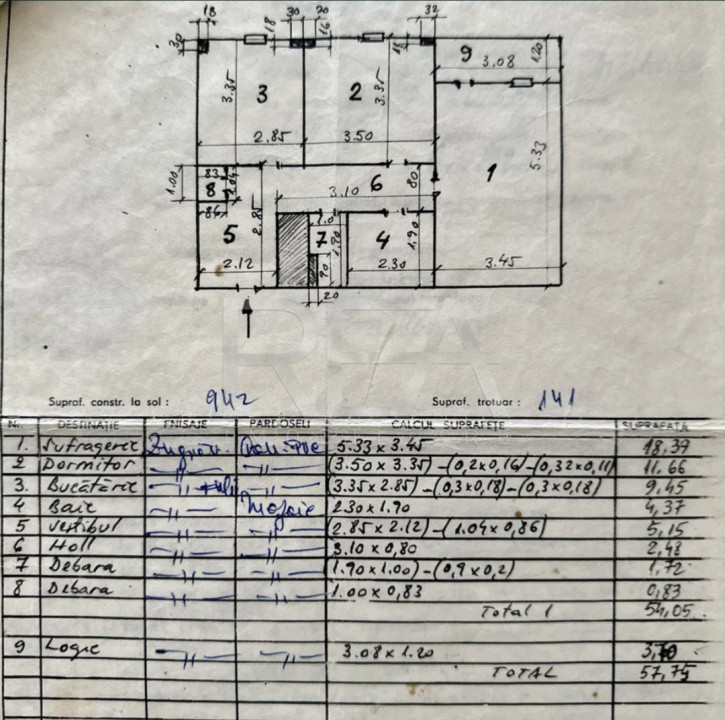 18 30 20 32
30 18 16 11
9 3.08 1.20
3.35 3 2 3.35
2.85 3.50 5.33
1
1.00 83 1.04 8 6 80
3.10
84
5 2.85 7 1.90 4 1.90
2.12 90 2.30 3.45
20
Supraf. constr. la sol : 942 Supraf. trotuar : 141
N. DESTINAȚIE FINISAJE PARDOSELI CALCUL SUPRAFEȚE SUPRAFAȚA
1. Sufragerie 5.33 x 3.45 18,39
2 Dormitor —〃— —〃— (3.50 x 3.35) – (0,2x0,16) – (0,32x0,11) 11.66
3. Bucătărie —〃— —〃— (3.35x2.85) – (0,3x0,18) – (0,3x0,18) 9,45
4 Baie —〃— Mozaic 2.30 x 1.90 4,37
5 Vestibul —〃— —〃— (2.85 x 2.12) – (1.04x0,86) 5,15
6 Holl —〃— —〃— 3.10 x 0,80 2,48
7 Debara —〃— —〃— (1.90x1.00) – (0,9x0,2) 1.72
8 Debara —〃— —〃— 1.00 x 0,83 0,83
Total 1 54,05
9 Logie —〃— —〃— 3.08 x 1.20 3,70
TOTAL 57,75